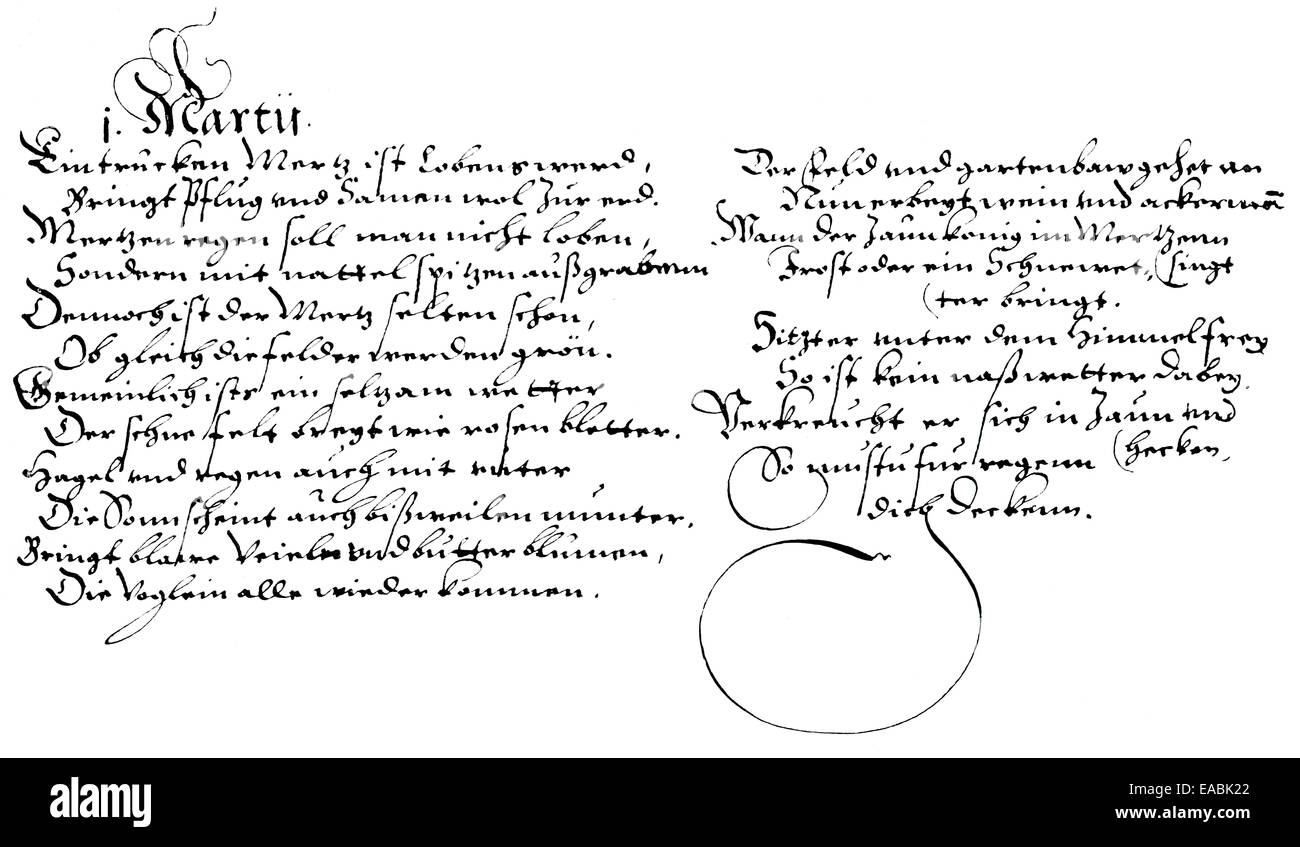 j. Martij.
Ein trucken Mertz ist lobenswerd,
Bringt Pflug und Samen wol zur erd.
Mertzen regen soll man nicht loben,
Sondern mit nattelspitzen außgrabenn
Dennoch ist der Mertz selten schon,
Ob gleich die felder werden grön.
Gemeinlich ists ein seltzam wetter
Der schne felt breyt wie rosen bletter.
Hagel vnd regen auch mit vnter
Die Sonn scheint auch bißweilen munter.
Bringt blawe Veieln vnd butter blumen,
Die Voglein alle wieder kommen.
Der feld vnd gartenbaw gehet an
Nun erbeyt wein vnd ackermañ
Wann der Zaunkonig im Mertzenn
Frost oder ein Schnewet„ (singt
(ter bringt.
Sitzt er vnter dem Himmel frey
So ist kein naß wetter dabey.
Verkreucht er sich in Zaun vnd
So mustu fur regenn (hecken,
dich deckenn.
a alamy stock photo
alamy
Image ID: EABK22
www.alamy.com